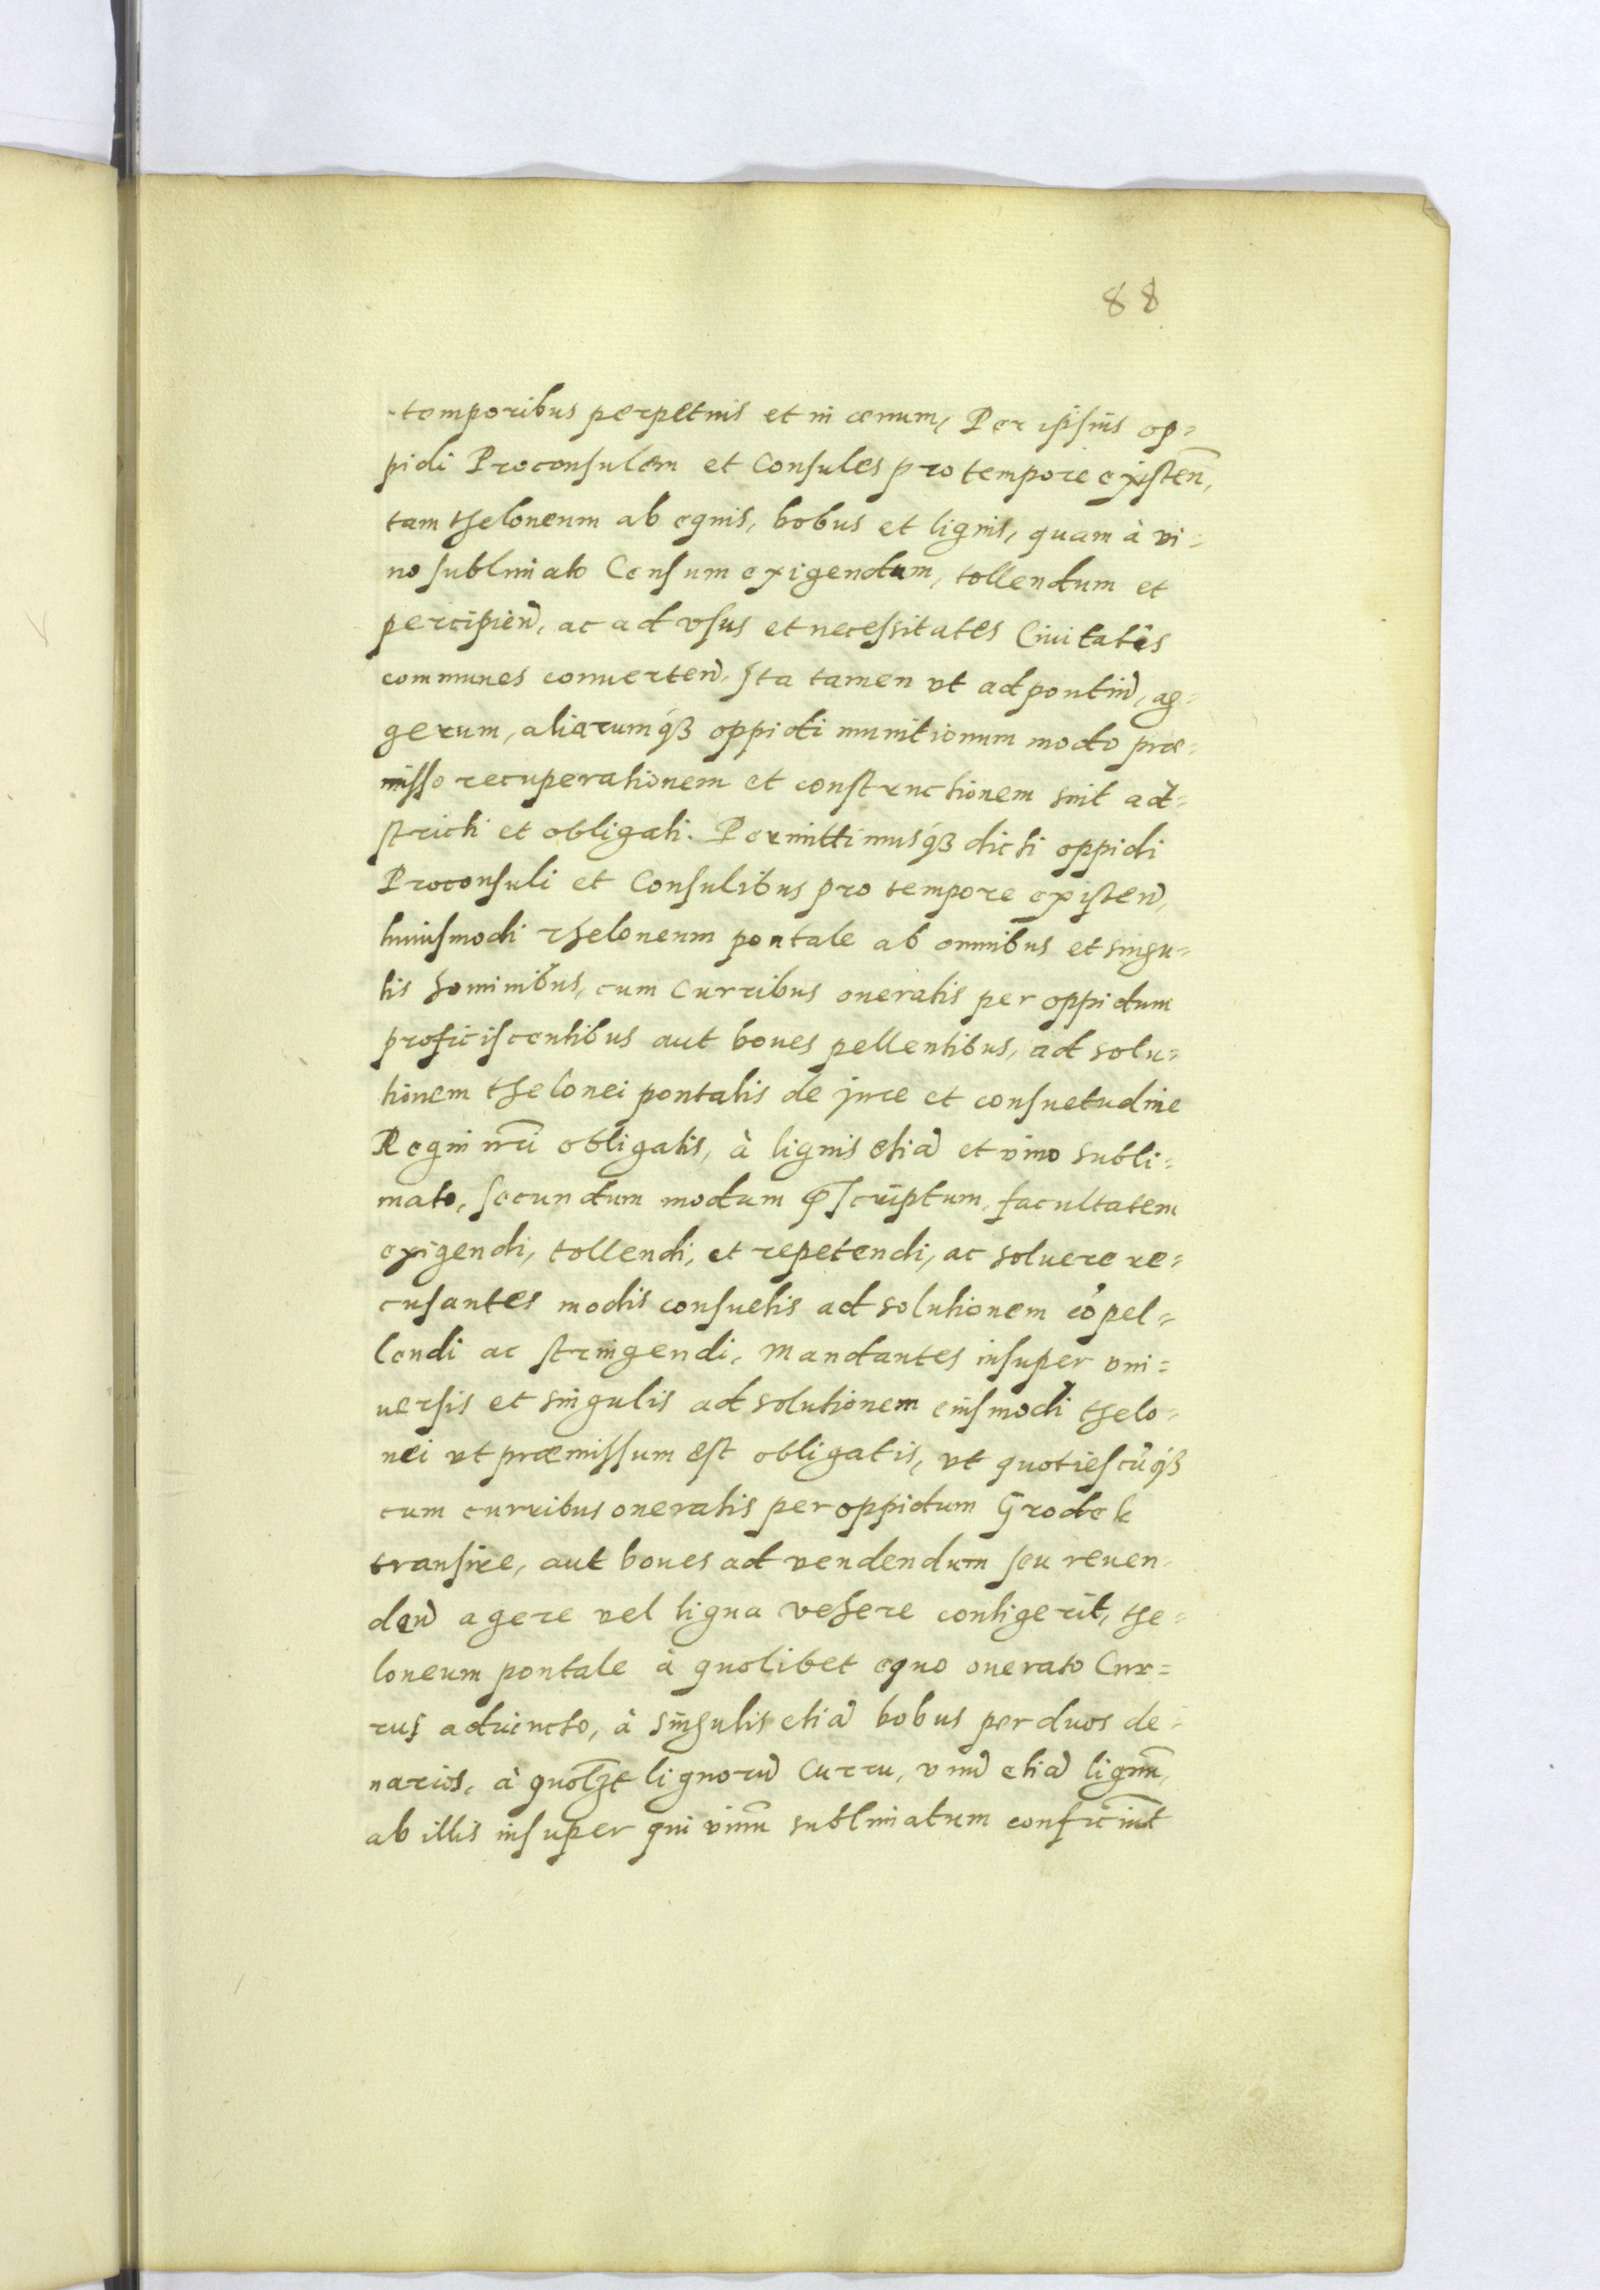 88
temporibus perpetuis et in æuum, Per ipsius op=
pidi Proconsulem et Consules pro tempore existeñ,
tam theloneum ab equis, bobus et lignis, quam à vi=
no sublimato Censum exigendum, tollendum et
percipieñ, ac ad vsus et necessitates Ciuitatis
communes conuerteñ. Ita tamen vt ad pontiũ, ag=
gerum, aliarumq́ꝫ oppidi munitionum modo præ=
misso recuperationem et constructionem sint ad=
stricti et obligati. Permittimusq́ꝫ dicti oppidi
Proconsuli et Consulibus pro tempore existeñ,
huiusmodi theloneum pontale ab omnibus et singu=
lis hominibus, cum curribus oneratis per oppidum
proficiscentibus aut boues pellentibus, ad solu=
tionem thelonei pontalis de jure et consuetudine
Regni nr̃i obligatis, à lignis etiã et vino subli=
mato, secundum modum p̃scriptum, facultatem
exigendi, tollendi, et repetendi, ac soluere re=
cusantes modis consuetis ad solutionem cõpel=
lendi ac stringendi, Mandantes insuper vni=
uersis et singulis ad solutionem eiusmodi thelo=
nei vt præmissum est obligatis, vt quotiescũq́ꝫ
cum curribus oneratis per oppidum Grodek
transire, aut boues ad vendendum seu reuen=
dendũ agere vel ligna vehere contigerit, the=
loneum pontale à quolibet equo onerato Cur=
rus aduincto, à singulis etiã bobus per duos de=
narios, à quolꝫt lignorũ curru, vnũ etiã lignũ,
ab illis insuper qui vinũ sublimatum conficiũt